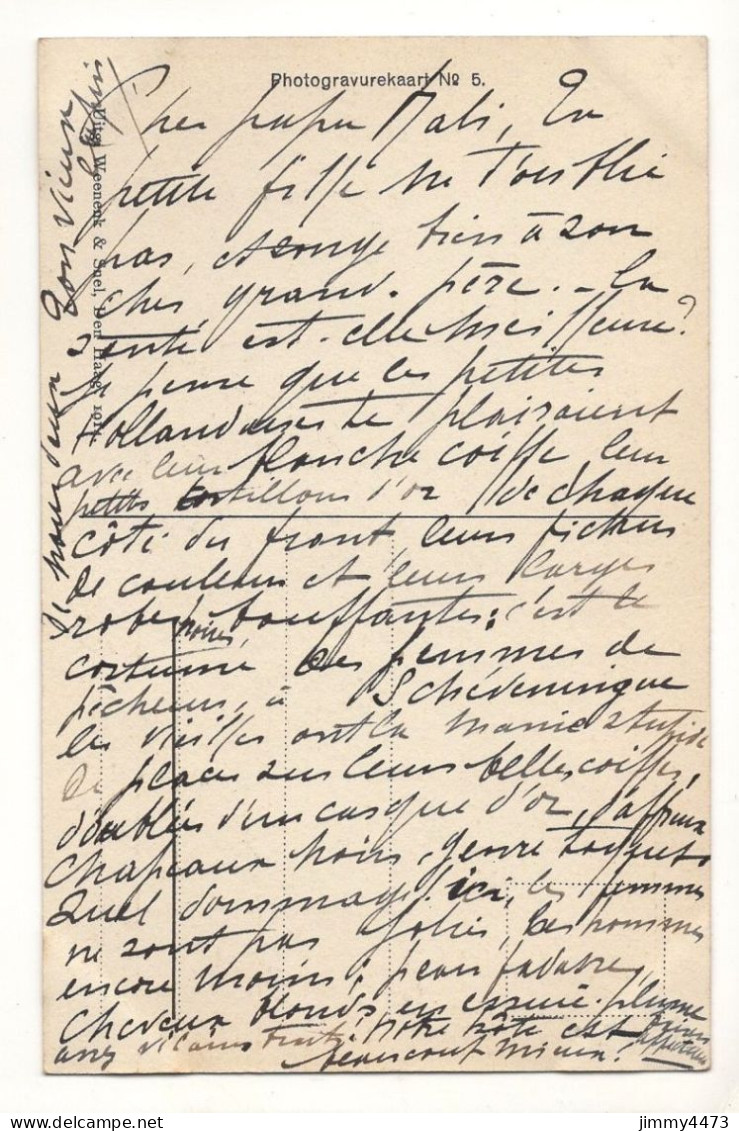 Photogravurekaart No 5.
Cher papa Kabi, Ta
petite fille ne t'oublie
pas, et songe bien à son
cher grand-père. - La
santé est-elle meilleure?
Je pense que les petites
Hollandaises te plairaient
avec leur blanche coiffe, leur
petits tortillons d'or de chaque
côté du front leurs fichus
de couleurs et leurs larges
robes bouffantes; c'est le
noires
costume des femmes de
pêcheurs, à Schéveningue
les vieilles ont la manie stupide
de placer sur leurs belles coiffes,
doublées d'un casque d'or, d'affreux
chapeaux noirs, genre toquets
Quel dommage! ici, les femmes
ne sont pas jolies, les hommes
encore moins; peau fadasse,
cheveux blonds en essuie-plume
assez vilains traits! notre hôte est
beaucoup mieux!
Ton vieux
Uitg. Weenenk & Snel, Den Haag, 1914.
jimmy4473